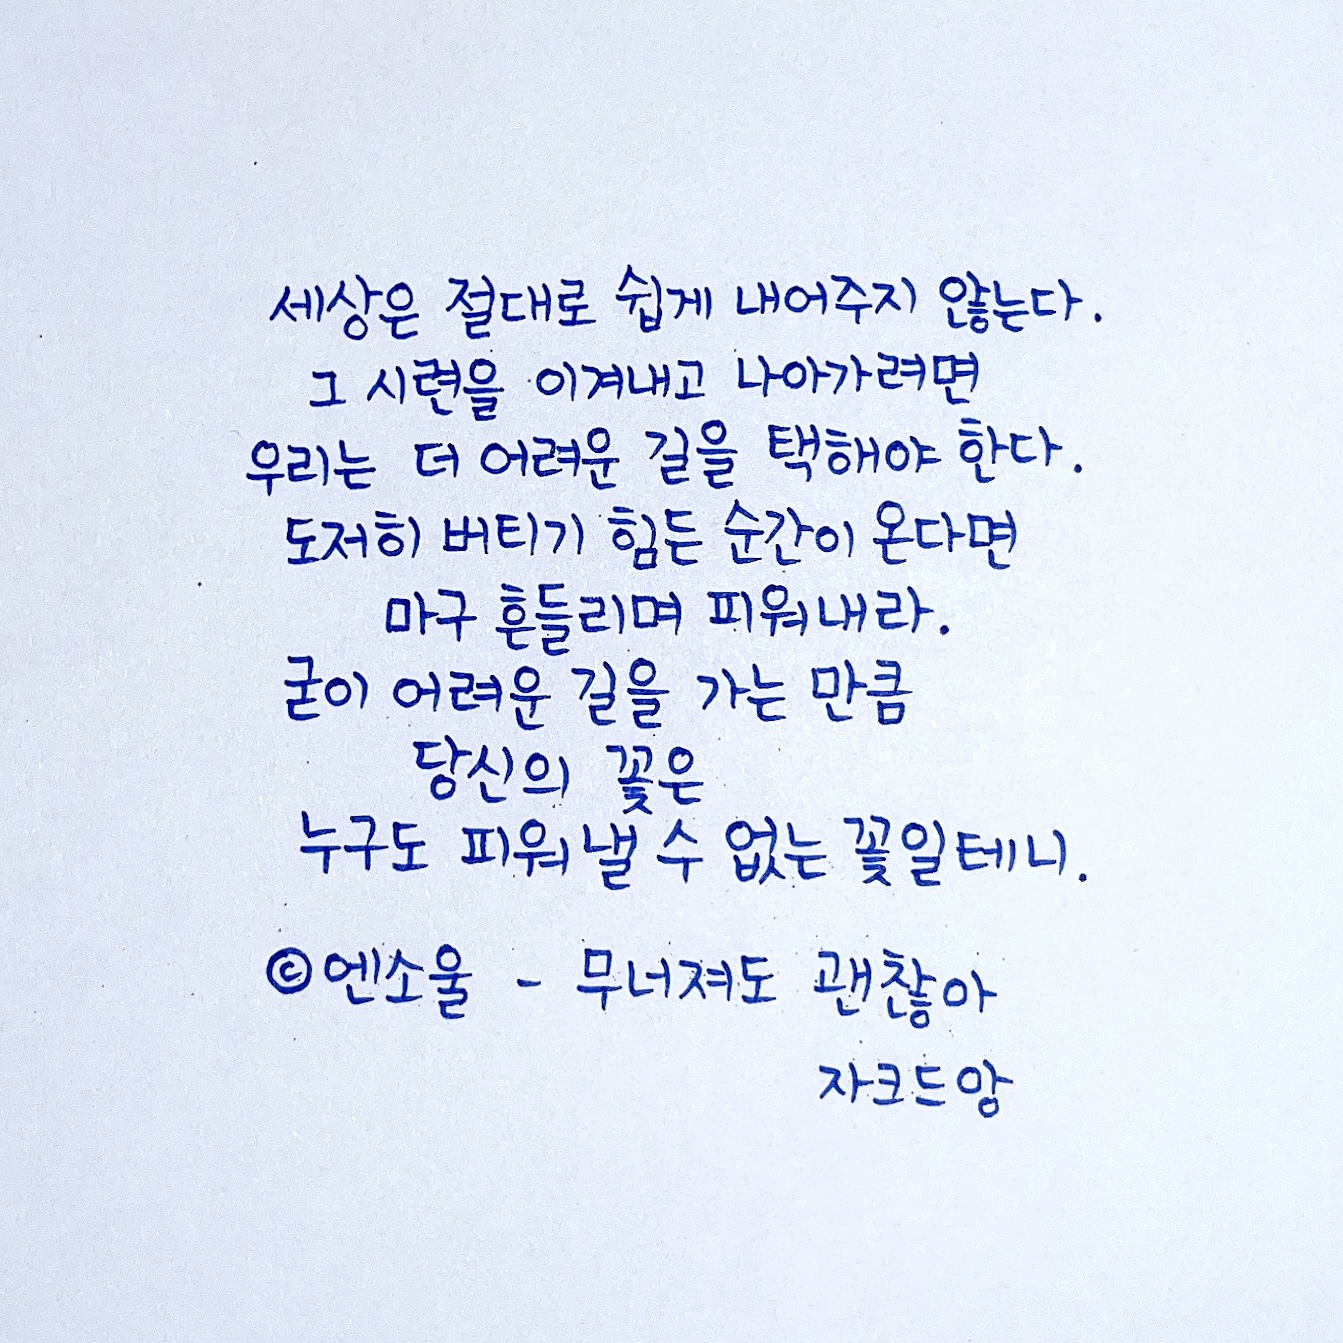 세상은 절대로 쉽게 내어주지 않는다.
그 시련을 이겨내고 나아가려면
우리는 더 어려운 길을 택해야 한다.
도저히 버티기 힘든 순간이 온다면
마구 흔들리며 피워내라.
굳이 어려운 길을 가는 만큼
당신의 꽃은
누구도 피워낼 수 없는 꽃일테니.
©엔소울 - 무너져도 괜찮아
자크드앙